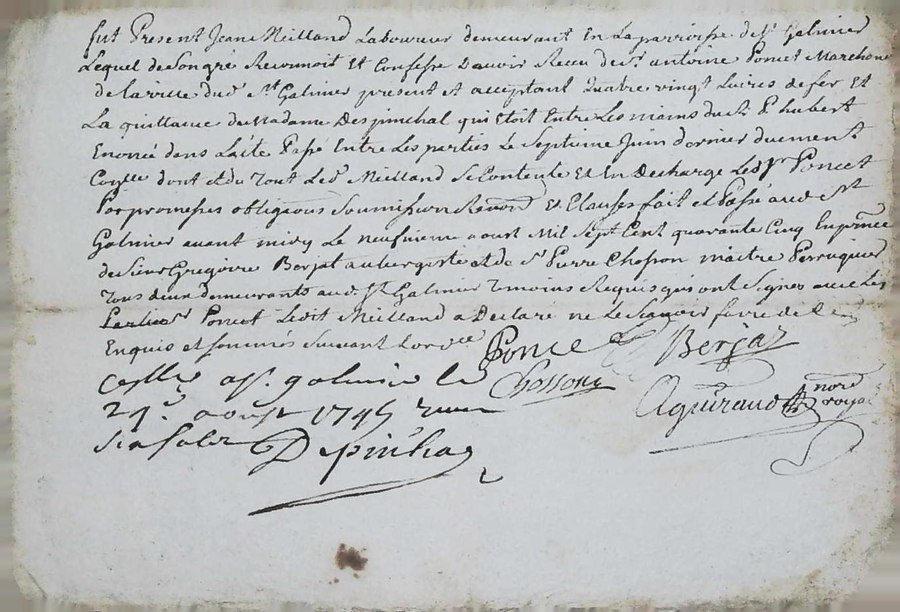 fut Present Jean Meilland Laboureur demeurant En La parroisse de St Galmier
Lequel de son gré Reconnoit Et Confesse Davoir Receu de sr. antoine Poncet Marchand
de la ville dud. St Galmier present et acceptant Quatre vingt Livres de fer Et
La quittance de Madame Despinchal qui Etoit Entre Les mains du sr P. hubert
Enoncé dans L'acte Passé Entre Les parties Le Septieme Juin dernier duement
dont et du Tout Led. Meilland Se Contente Et En Decharge Led. sr Poncet
Par promesses obligations Soumission Renon. Et Clauses fait et Passé aud. St
Galmier avant midy Le neufvieme aoust Mil Sept Cent quarante Cinq En pnce
de Sieur Gregoire Berjat aubergiste et de Sr Pierre Chosson maitre Perruquier
Tous deux demeurants aud. St Galmier Temoins Requis qui ont Signes avec Led.
sr Poncet Ledit Meilland a Declare ne Le Scavoir faire de Ce
Enquis et sommes Suivant Lord.ce
Ponce Berjat
Chosson
Aguiraud nore royal
galmier le
21e. aoust 1745
Depinhac